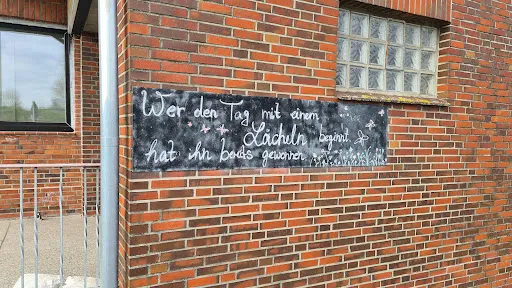 Wer den Tag mit einem
Lächeln beginnt
hat ihn bereits gewonnen